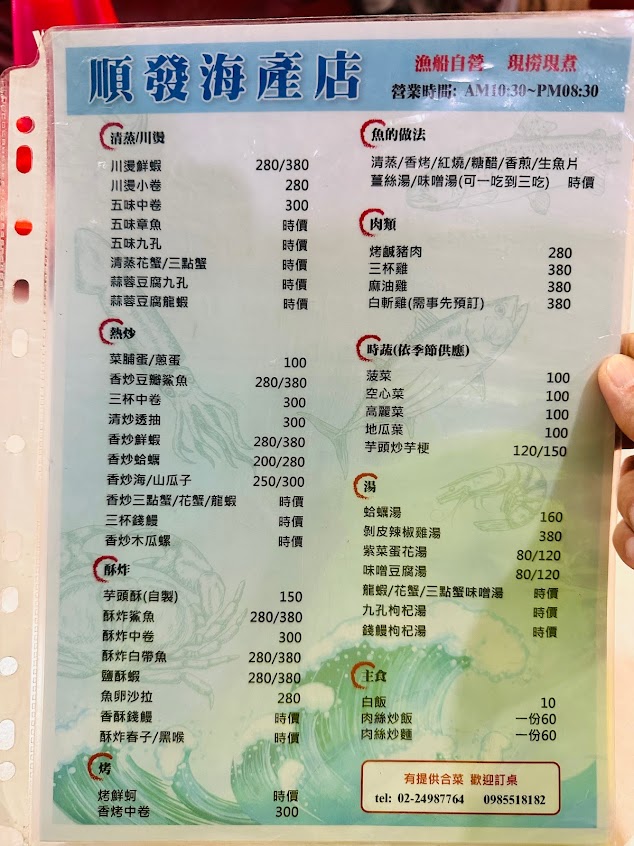 順發海產店
漁船自營 現撈現煮
營業時間: AM10:30~PM08:30
清蒸/川燙
川燙鮮蝦 280/380
川燙小卷 280
五味中卷 300
五味章魚 時價
五味九孔 時價
清蒸花蟹/三點蟹 時價
蒜蓉豆腐九孔 時價
蒜蓉豆腐龍蝦 時價
熱炒
菜脯蛋/蔥蛋 100
香炒豆瓣鯊魚 280/380
三杯中卷 300
清炒透抽 300
香炒鮮蝦 280/380
香炒蛤蠣 200/280
香炒海/山瓜子 250/300
香炒三點蟹/花蟹/龍蝦 時價
三杯錢鰻 時價
香炒木瓜螺 時價
酥炸
芋頭酥(自製) 150
酥炸鯊魚 280/380
酥炸中卷 300
酥炸白帶魚 280/380
鹽酥蝦 280/380
魚卵沙拉 280
香酥錢鰻 時價
酥炸春子/黑喉 時價
烤
烤鮮蚵 時價
香烤中卷 300
魚的做法
清蒸/香烤/紅燒/糖醋/香煎/生魚片
薑絲湯/味噌湯(可一吃到三吃) 時價
肉類
烤鹹豬肉 280
三杯雞 380
麻油雞 380
白斬雞(需事先預訂) 380
時蔬(依季節供應)
菠菜 100
空心菜 100
高麗菜 100
地瓜葉 100
芋頭炒芋梗 120/150
湯
蛤蠣湯 160
剝皮辣椒雞湯 380
紫菜蛋花湯 80/120
味噌豆腐湯 80/120
龍蝦/花蟹/三點蟹味噌湯 時價
九孔枸杞湯 時價
錢鰻枸杞湯 時價
主食
白飯 10
肉絲炒飯 一份60
肉絲炒麵 一份60
有提供合菜 歡迎訂桌
tel: 02-24987764 0985518182